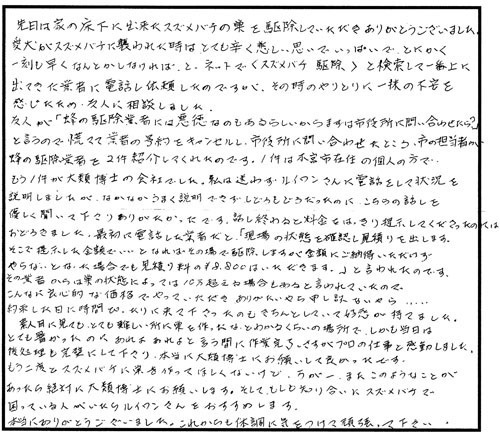 先日は家の床下に出来たスズメバチの巣を駆除していただきありがとうございました。
愛犬がスズメバチに襲われた時はとても辛く悲しい思いでいっぱいで、とにかく
一刻も早くなんとかしなければ、と、ネットで〈スズメバチ 駆除〉と検索して一番上に
出てきた業者に電話し依頼したのですが、その時のやりとりに一抹の不安を
感じたため、友人に相談しました。
友人が「蜂の駆除業者には悪徳なのもあるらしいからまずは市役所に問い合わせたら?」
と言うので慌てて業者の予約をキャンセルし、市役所に問い合わせたところ、市の担当者が
蜂の駆除業者を2件紹介してくれたのです。1件は本宮市在住の個人の方で
もう1件が大類博士の会社でした。私は迷わずルイワンさんに電話をして状況を
説明しましたが、なかなかうまく説明できずしどろもどろだったのに、こちらの話しを
優しく聞いて下さりありがたかったです。話し終わると料金をはっきり提示してくださったのには
おどろきました。最初に電話した業者だと、「現場の状態を確認し見積りを出します。
そこで提示した金額でいい、となればその場で駆除しますが金額にご納得いただけず
やらない、となった場合でも見積り料の¥8,800はいただきます。」と言われたのです。
その業者からは巣の状態によっては10万超える場合もあると言われていたので
こんなに良心的な価格でやっていただきありがたいやら申し訳ないやら......
約束した日に時間ぴったりに来て下さったのもきちんとしていて好感が持てました。
素人目に見ても、とても難しい所に巣を作ったな、とわかるくらいの場所で、しかも当日は
とても暑かったのに、あれよあれよと言う間に作業完了。さすがプロの仕事と感動しました。
後処理も完璧にして下さり、本当に大類博士にお願いして良かったです。
もう二度とスズメバチに巣を作ってほしくないけど、万が一、またこのようなことが
あったら絶対に大類博士にお願いします。そして、もしも知り合いにスズメバチで
困っている人がいたらルイワンさんをおすすめします。
本当にありがとうございました。これからも体調に気をつけて頑張って下さい。